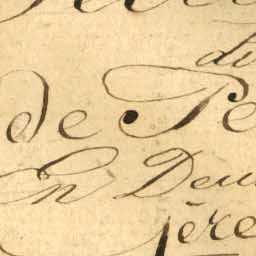 di
de Pe
En Deu
ère